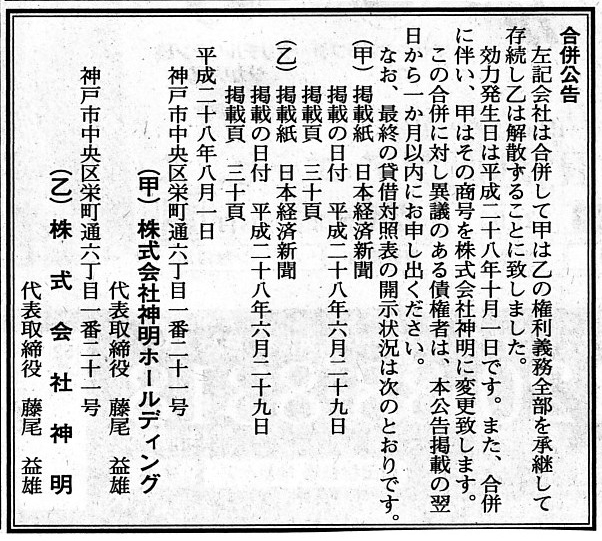 合併公告
左記会社は合併して甲は乙の権利義務全部を承継して
存続し乙は解散することに致しました。
効力発生日は平成二十八年十月一日です。また、合併
に伴い、甲はその商号を株式会社神明に変更致します。
この合併に対し異議のある債権者は、本公告掲載の翌
日から一か月以内にお申し出ください。
なお、最終の貸借対照表の開示状況は次のとおりです。
(甲)掲載紙 日本経済新聞
掲載の日付 平成二十八年六月二十九日
掲載頁 三十頁
(乙)掲載紙 日本経済新聞
掲載の日付 平成二十八年六月二十九日
掲載頁 三十頁
平成二十八年八月一日
神戸市中央区栄町通六丁目一番二十一号
(甲)株式会社神明ホールディング
代表取締役 藤尾 益雄
神戸市中央区栄町通六丁目一番二十一号
(乙)株式会社神明
代表取締役 藤尾 益雄